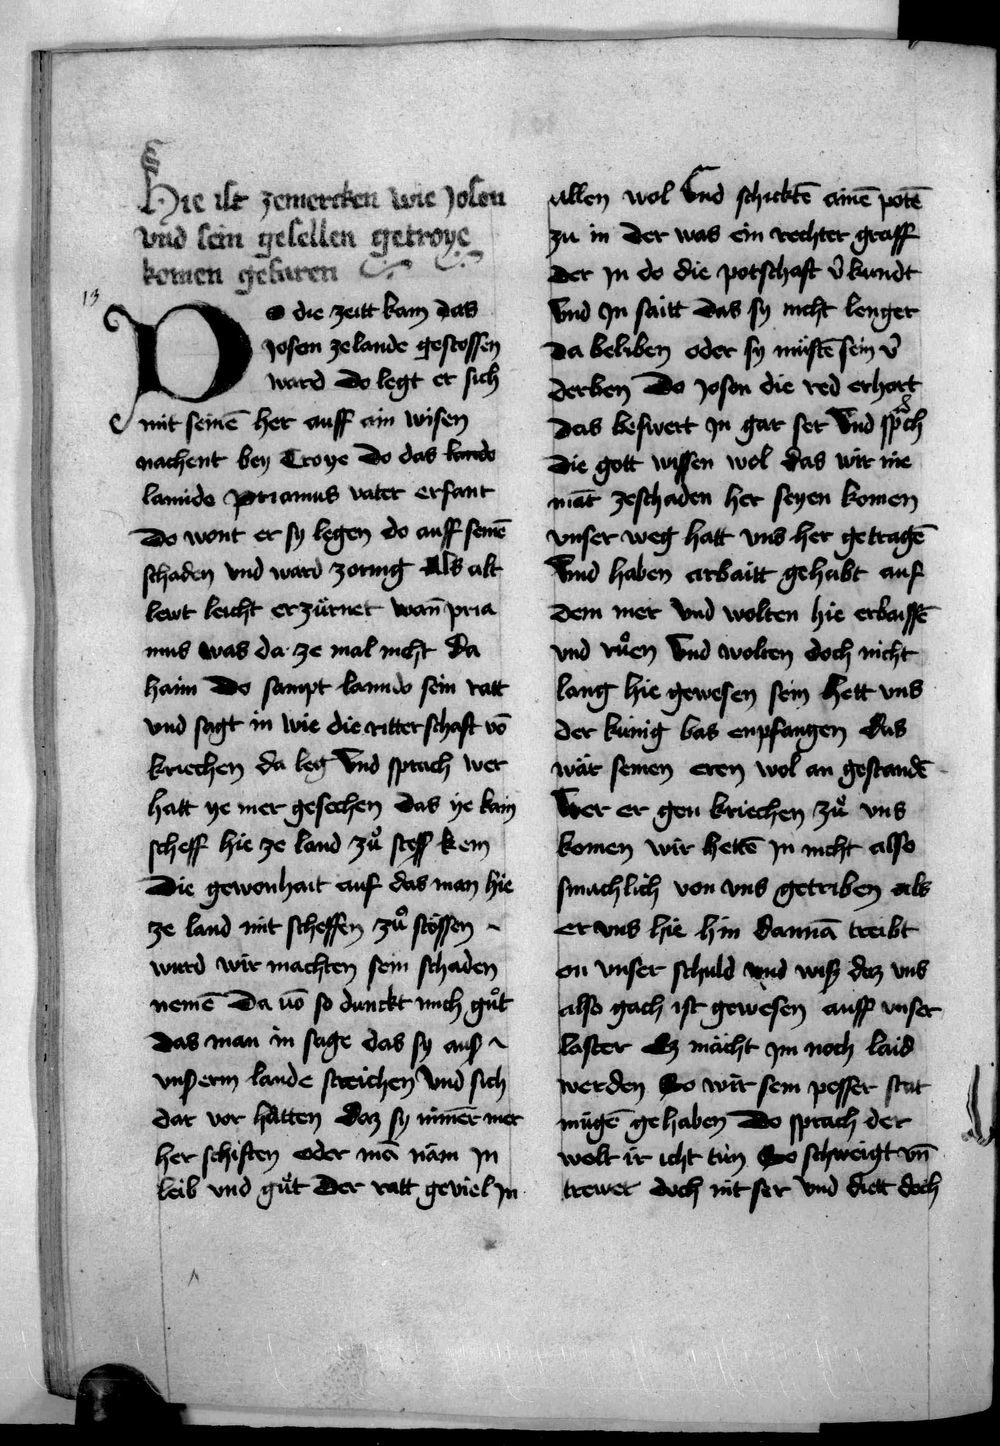 Hie ist zemercken wie Joson
vnd sein gesellen getroye
komen gefaren
13
Do die zeitt kam das
Joson zelande gestossen
ward do legt er sich
mit seinē her auff ain wisen
nachent bey Troye do das lando
lamido priamus vater erfant
do wont er sy legen do auff seinē
schaden vnd ward zornig Als alt
lewt leicht erzürnet wan̄ pria
mus was da ze mal nicht da
haim Do sampt lamido sein ratt
vnd sagt in wie die ritterschaft vō
kriechen da leg Vnd sprach wer
hatt ye mer gesechen das ye kain
scheff hie ze land zů steff kem
Die gewonhait auf das man hie
ze land mit scheffen zů stössen
wurd wir machten sein schaden
nemē Da vō so dunckt mich gůt
das man in sage das sy auß
vnßerm lande streichen Vnd sich
dar vor hůtten daz sy nimēr mer
her schiften oder mā näm In
leib vnd gůt Der ratt geviel In
allen wol Vnd schicktē ainē potē
zu in der was ein rechter graff
der In do die potschaft v̄kundt
Vnd In saitt das sy nicht lenger
da beliben oder sy müstē sein v̄
derben Do Joson die red erhort
das beswert In gar ser Vnd sprach
die gott wissen wol das wir nie
māt zeschaden her seyen komen
vnser weg hatt vns her getragē
Vnd haben arbaitt gehabt auf
dem mer Vnd wolten hie erbaissē
vnd růen Vnd wolten doch nicht
lang hie gewesen sein hett vns
der künig bas enpfangen das
wär seinen eren wol an gestandē
Wer er gen kriechen zů vns
komen wir hettē In nicht also
smachlich von vns getriben als
er vns hie hin dannā treibt
on vnser schuld vnd wiß daz vns
also gach ist gewesen auff vnser
laster Ez mächt Im noch laid
werden So wir sein pesser stat
mügē gehaben Do sprach der
wolt ir icht tůn So schweigt vn̄
trewet doch nit ser Vnd diett doch